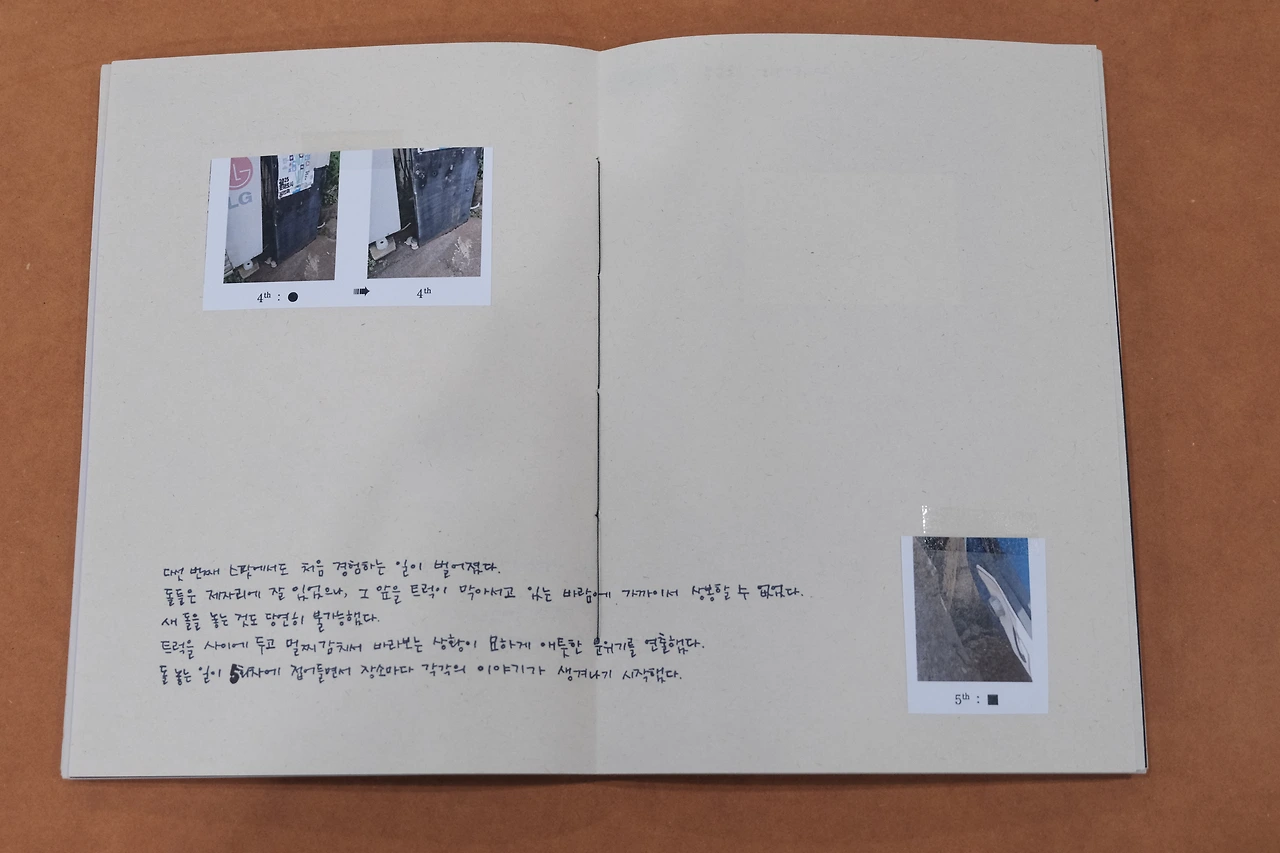 LG
2025
4th : ●
4th
다섯 번째 스팟에서도 처음 경험하는 일이 벌어졌다.
돌들은 제자리에 잘 있었으나, 그 앞을 트럭이 막아서고 있는 바람에 가까이서 상봉할 수 없었다.
새 돌을 놓는 것도 당연히 불가능했다.
트럭을 사이에 두고 멀찌감치서 바라보는 상황이 묘하게 애틋한 분위기를 연출했다.
돌 놓는 일이 5차에 접어들면서 장소마다 각각의 이야기가 생겨나기 시작했다.
5th : ■